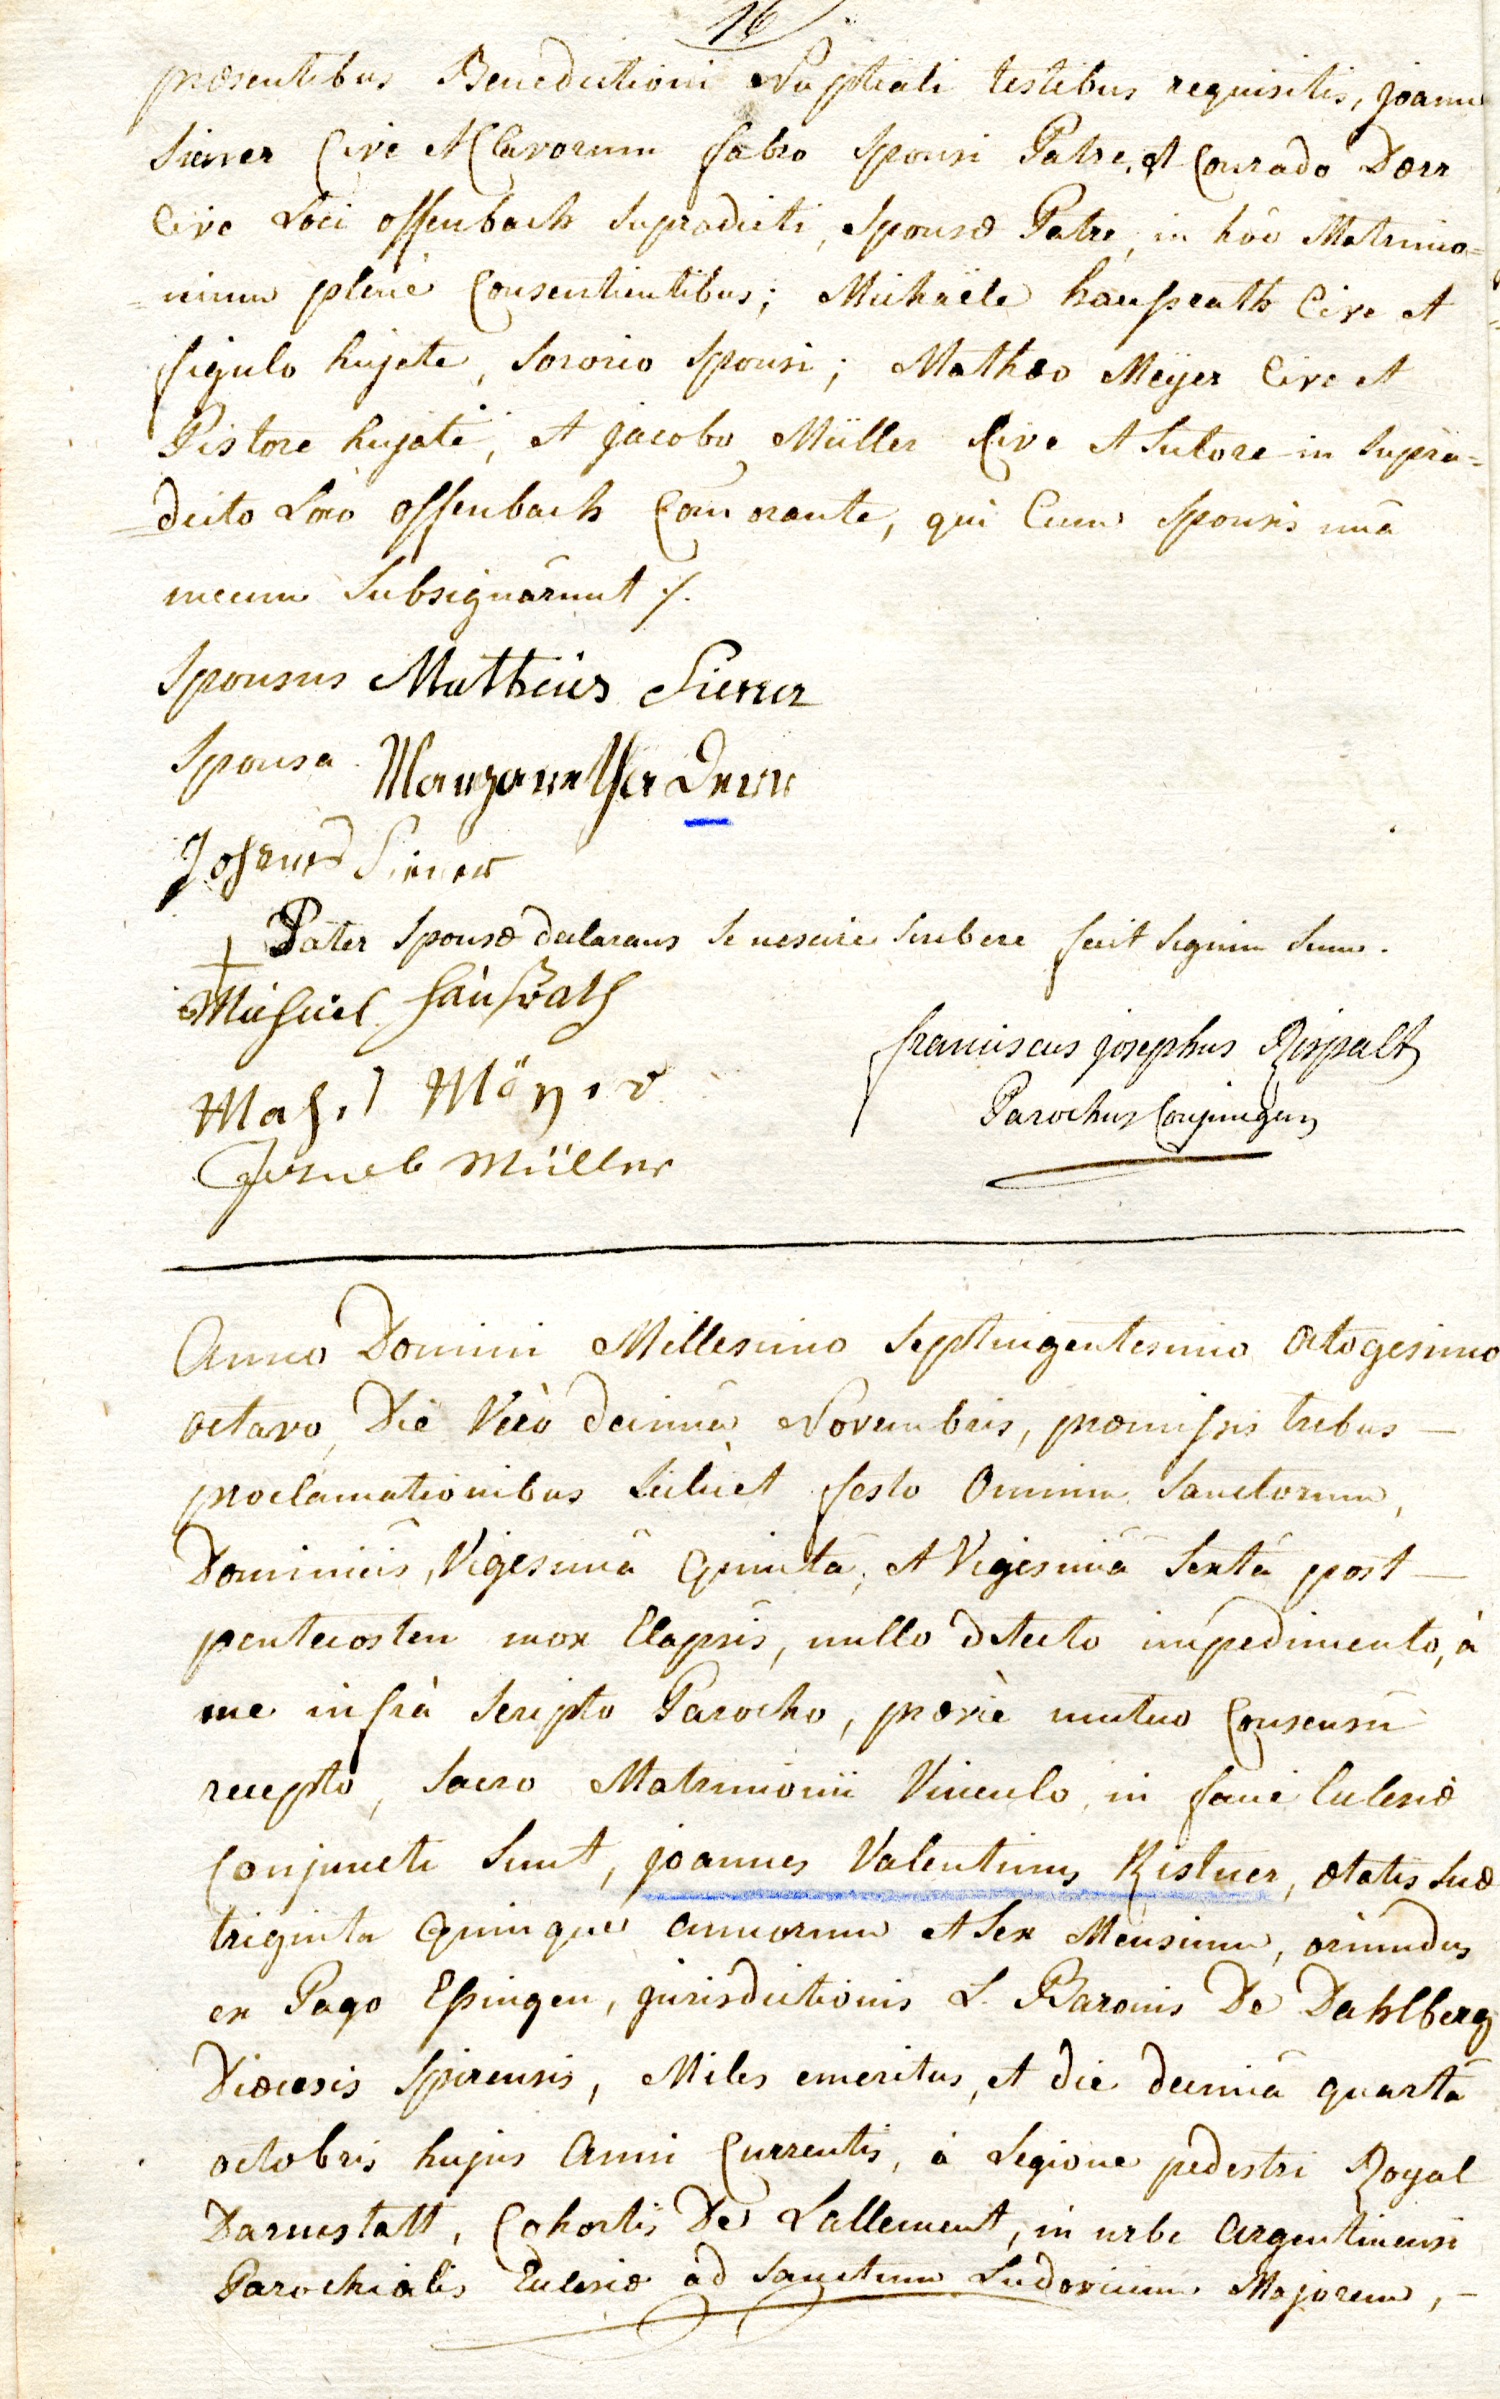 16
præsentibus Benedictioni Nuptiali testibus requisitis, joanne
Siener Cive et Clavorum fabro Sponsi Patre, et Conrado Dörr
Cive Loci Offenbach Supradicti, Sponsæ Patre, in hôc Matrimo=
=nium plenè Consentientibus; Michaële hausrath Cive et
figulo hujate, Sororio Sponsi; Mathæo Meÿer Cive et
Pistore hujate, et jacobo Müller Cive et Sutore in Supra=
=dicto Loco Offenbach Com̄orante, qui Cum Sponsis unâ
mecum Subsignârunt ./.
Sponsus Mattheüs Siener
Sponsa Margaretha Derr
Johanes Siener
+ Pater Sponsæ declarans Se nescire Scribere fecit Signum Suum.
Michael Haußrath
Mathes Mäyer
Jacob Müller
franciscus josephus Rispalt
Parochus Conjungens
Anno Domini Millesimo Septingentesimo octogesimo
octavo, Die Verò decimâ Novembris, præmissis tribus —
proclamationibus Scilicet festo Omnium Sanctorum,
Dominicis, Vigesimâ Quintâ, et Vigesimâ Sextâ post —
pentecosten mox Elapsis, nullo detecto impedimento, à
me infrà Scripto Parocho, præviè mutuo Consensu
recepto, Sacro Matrimonii Vinculo, in facie Ecclesiæ
Conjuncti Sunt, joannes Valentinus Kistner, ætatis Suæ
triginta Quinque annorum et Sex Mensium, oriundus
ex Pago Essingen, jurisdictionis L. Baronis De Dahlberg
Diœcesis Spirensis, Miles emeritus, et die decimâ quartâ
octobris hujus Anni Currentis, à Legione pedestri Royal
Darmstatt, Cohortis De Lallement, in urbe Argentinensi
Parochialis Ecclesiæ ad Sanctum Ludovicum Majorem, —